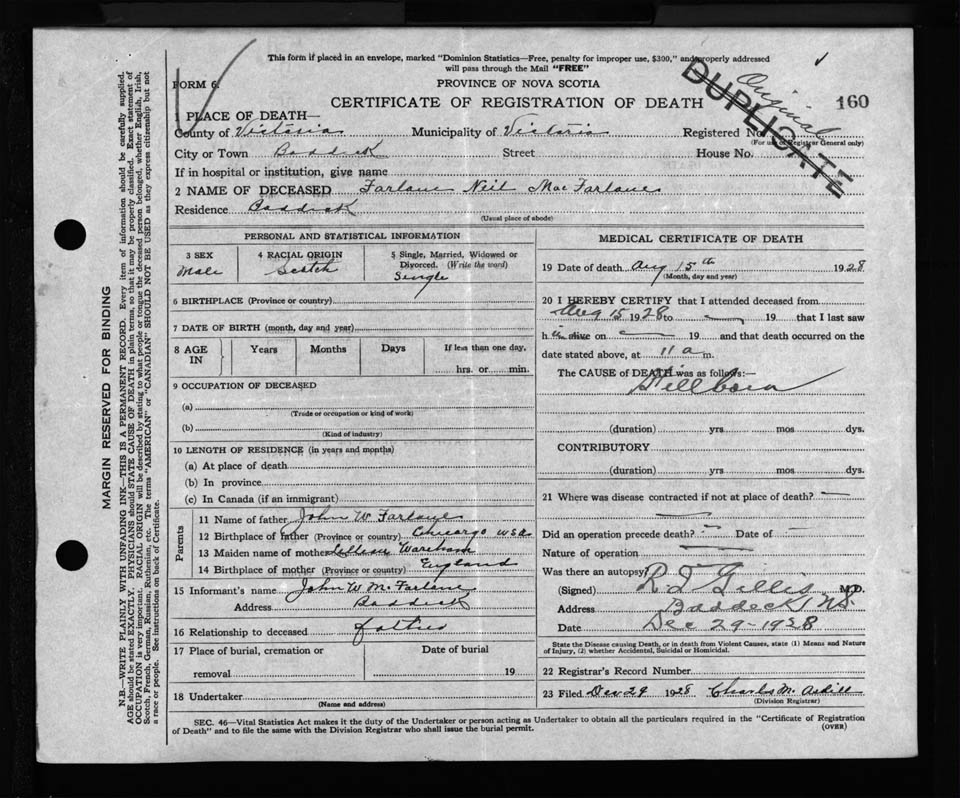 This form if placed in an envelope, marked "Dominion Statistics—Free, penalty for improper use, $300," and properly addressed
will pass through the Mail "FREE"
FORM 6.
PROVINCE OF NOVA SCOTIA
CERTIFICATE OF REGISTRATION OF DEATH
Original
DUPLICATE
160
1 PLACE OF DEATH—
County of Victoria Municipality of Victoria Registered No.
(For use of Registrar General only)
City or Town Baddeck Street House No.
If in hospital or institution, give name
2 NAME OF DECEASED Farlane Neil MacFarlane
Residence Baddeck
(Usual place of abode)
PERSONAL AND STATISTICAL INFORMATION
3 SEX
Male
4 RACIAL ORIGIN
Scotch
5 Single, Married, Widowed or
Divorced. (Write the word)
Single
6 BIRTHPLACE (Province or country)
7 DATE OF BIRTH (month, day and year)
8 AGE
IN
Years
Months
Days
If less than one day.
hrs. or min.
9 OCCUPATION OF DECEASED
(a)
(Trade or occupation or kind of work)
(b)
(Kind of industry)
10 LENGTH OF RESIDENCE (in years and months)
(a) At place of death
(b) In province
(c) In Canada (if an immigrant)
Parents
11 Name of father John W Farlane
12 Birthplace of father (Province or country) Chicargo USA
13 Maiden name of mother Wareham
14 Birthplace of mother (Province or country) England
15 Informant's name John W McFarlane
Address Baddeck
16 Relationship to deceased father
17 Place of burial, cremation or
removal
Date of burial
19
18 Undertaker
(Name and address)
MEDICAL CERTIFICATE OF DEATH
19 Date of death Aug 15th 1928
(Month, day and year)
20 I HEREBY CERTIFY that I attended deceased from
Aug 15 1928 to — 19 that I last saw
h im alive on — 19 and that death occurred on the
date stated above, at 11 a m.
The CAUSE of DEATH was as follows:—
Stillborn
(duration) yrs mos dys.
CONTRIBUTORY
(duration) yrs. mos. dys.
21 Where was disease contracted if not at place of death? —
Did an operation precede death? — Date of —
Nature of operation
Was there an autopsy?
(Signed) R T Gillis M.D.
Address Baddeck NS.
Date Dec 29-1928
State the Disease causing Death, or in death from Violent Causes, state (1) Means and Nature
of Injury, (2) whether Accidental, Suicidal or Homicidal.
22 Registrar's Record Number
23 Filed Dec 29 1928 Charles McAskill
(Division Registrar)
SEC. 46—Vital Statistics Act makes it the duty of the Undertaker or person acting as Undertaker to obtain all the particulars required in the "Certificate of Registration
of Death" and to file the same with the Division Registrar who shall issue the burial permit.
(OVER)
MARGIN RESERVED FOR BINDING
N.B.—WRITE PLAINLY WITH UNFADING INK—THIS IS A PERMANENT RECORD. Every item of information should be carefully supplied.
AGE should be stated EXACTLY. PHYSICIANS should STATE CAUSE OF DEATH in plain terms, so that it may be properly classified. Exact statement of
OCCUPATION is very important. RACIAL ORIGIN will be described by stating to what people or tongue the deceased person belonged, whether English, Irish,
Scotch, French, German, Russian, Ruthenian, etc. The terms "AMERICAN" or "CANADIAN" SHOULD NOT BE USED as they express citizenship but not
a race or people. See instructions on back of Certificate.